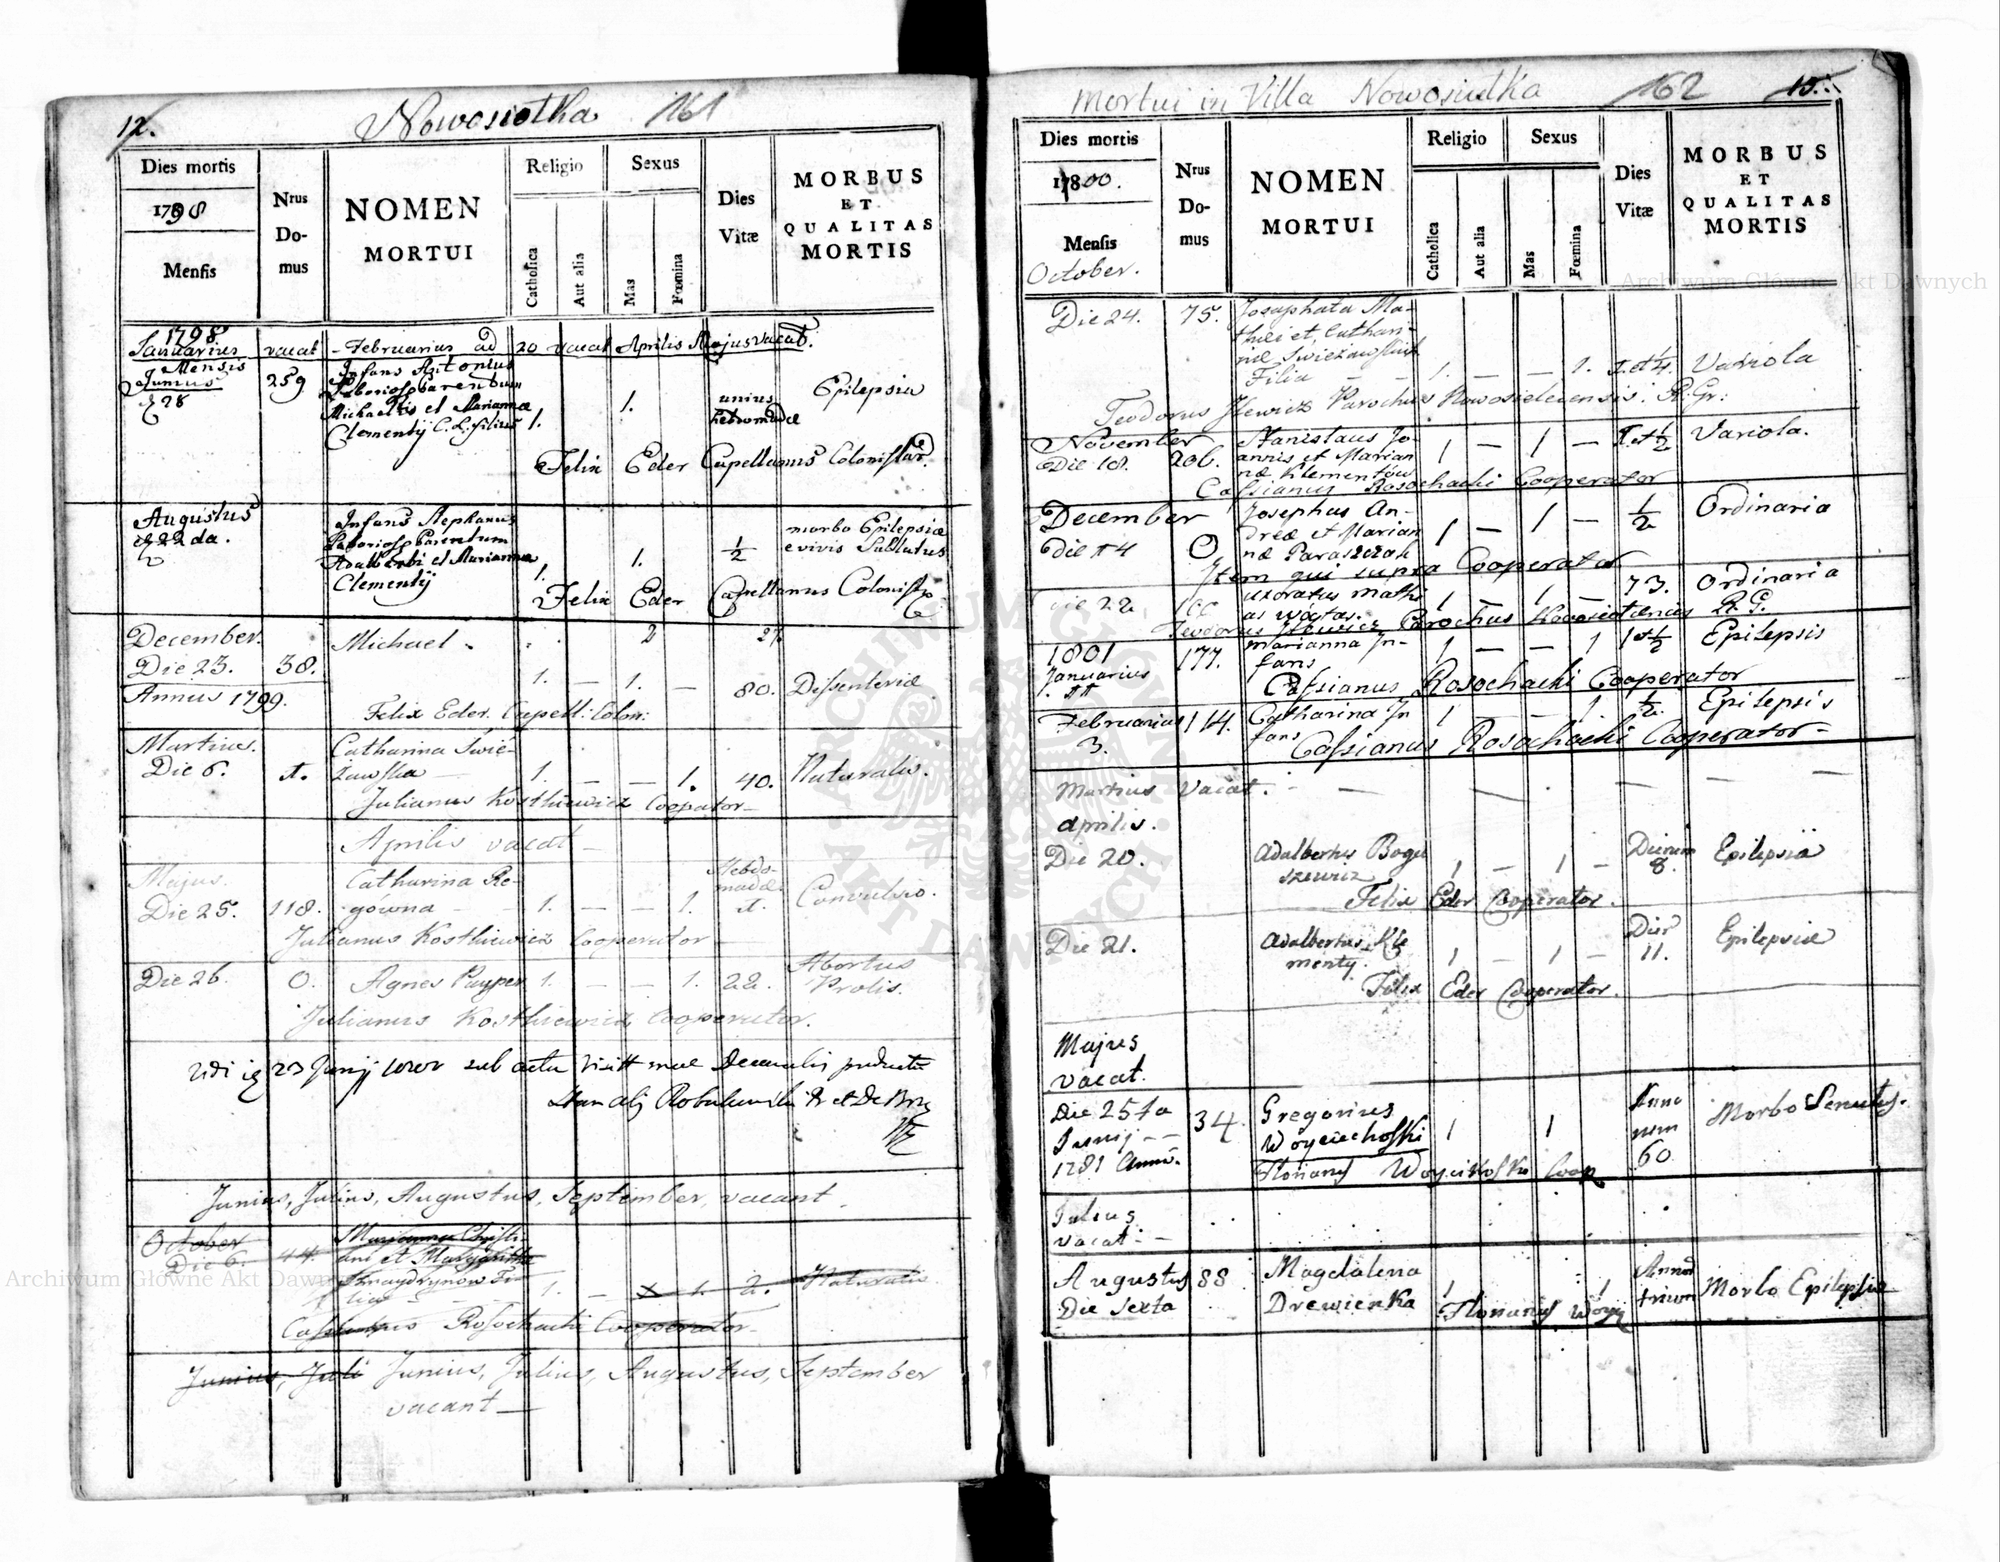 12.
Nowosiotka 161
Dies mortis
1798
Mensis
Nrus
Do-
mus
NOMEN
MORTUI
Religio
Catholica
Aut alia
Sexus
Mas
Fœmina
Dies
Vitæ
MORBUS
ET
QUALITAS
MORTIS
1798
Januarius vacat - Februarius ad 20 vacat Aprilis Majus vacat.
Mensis
Junius
28
259
Infans Antonius
Laborioso Parentum
Michaelis et Mariannæ
Clementÿ C. L. filius
1. 1.
unius
hebdomadæ
Epilepsia
Felix Eder Capellanus Colonistar.
Augustus
22 da.
Infans Stephanus
Laborioso Parentum
Adalberti et Marianna
Clementÿ
1. 1. 1/2
morbo Epilepsiæ
e vivis Sublatus
Felix Eder Capellanus Colonist
December.
Die 23. 38.
Michael.
1. — 1. — 80. Dissenteriæ
Annus 1799.
Felix Eder. Capell: Colon:
Martius.
Die 6.
Catharina Swie-
żawska —
1. — — 1. 40. Naturalis.
Julianus Kosthiewicz Coopator —
Aprilis vacat —
Majus.
Die 25. 118.
Catharina Re-
gówna —
1. — — 1.
Hebdo-
madæ
Convulsio.
Julianus Kosthiewicz Cooperator —
Die 26 0. Agnes Puyper 1. — — 1. 22.
Abortus
Prolis.
Julianus Kosthiewicz Cooperator.
23 Junij sub actu Decanalis
Junius, Julius, Augustus, September, vacant.
October
Die 6. 44.
Marianna Christi-
ani et Malgaritha
Fi-
lia
1. — x 1. 2. Naturalis
Cassianus Rosochacki Cooperator —
Junius, Juli Junius, Julius, Augustus, September
vacant —
Mortui in Villa Nowosiutka 162 13.
Dies mortis
1800.
Mensis
October.
Nrus
Do-
mus
NOMEN
MORTUI
Religio
Catholica
Aut alia
Sexus
Mas
Fœmina
Dies
Vitæ
MORBUS
ET
QUALITAS
MORTIS
Die 24. 75.
Josaphata Ma-
thei et Cathari-
næ Swiezawskich
Filia — —
1. — — 1. 1. et 1/4. Variola
Teodorus Ilewicz Parochus Nowosielecensis. R. Gr:
November
Die 18. 206.
Stanislaus Jo-
annis et Marian
næ Klementów
1 — 1 — 1. et 1/2 Variola.
Cassianus Rosochacki Cooperator
December
die 14 0
Josephus An-
dreæ et Marian
næ Paraszczak
1 — 1 — 1/2 Ordinaria
Item qui supra Cooperator
die 22
uxoratus Math
as Wągtas.
1 — 1 — 73. Ordinaria
Teodorus Ilewicz Parochus R. G.
1801
Januarius
177.
Marianna In-
fans
1 — — 1 1 et 1/2 Epilepsis
Cassianus Rosochacki Cooperator
Februarius
3.
114.
Catharina In
fans
1 — 1. 1/2. Epilepsis
Cassianus Rosochacki Cooperator —
Martius Vacat.
Aprilis.
Die 20.
Adalbertus Bogu
szewicz
1 — 1 —
Dierum
8.
Epilepsiâ
Felix Eder Cooperator.
Die 21.
Adalbertus Kle
menty.
1 — 1 —
Dier
11.
Epilepsiæ
Felix Eder Cooperator.
Majus
vacat.
Die 25ta
Junij — —
1781 Anno.
34.
Gregorius
Woyciechoski
1 1
Anno
rum
60
Morbo Senectuty.
Florianus Woycikoski Coop
Julius
vacat — —
Augustus
Die Sexta
88
Magdalena
Drewienka
1 1
Annor
trium
Morbo Epilepsia
Florianus Woyci
Archiwum Główne Akt Dawnych
Archiwum Główne Akt Dawnych
ARCHIWUM GŁÓWNE AKT DAWNYCH